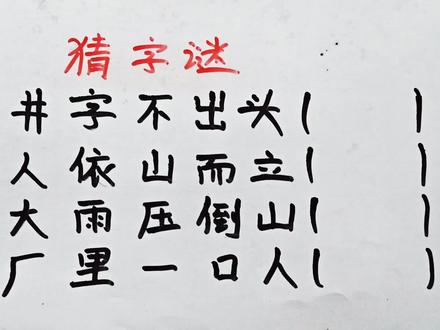 猜字谜
井字不出头( )
人依山而立( )
大雨压倒山( )
厂里一口人( )